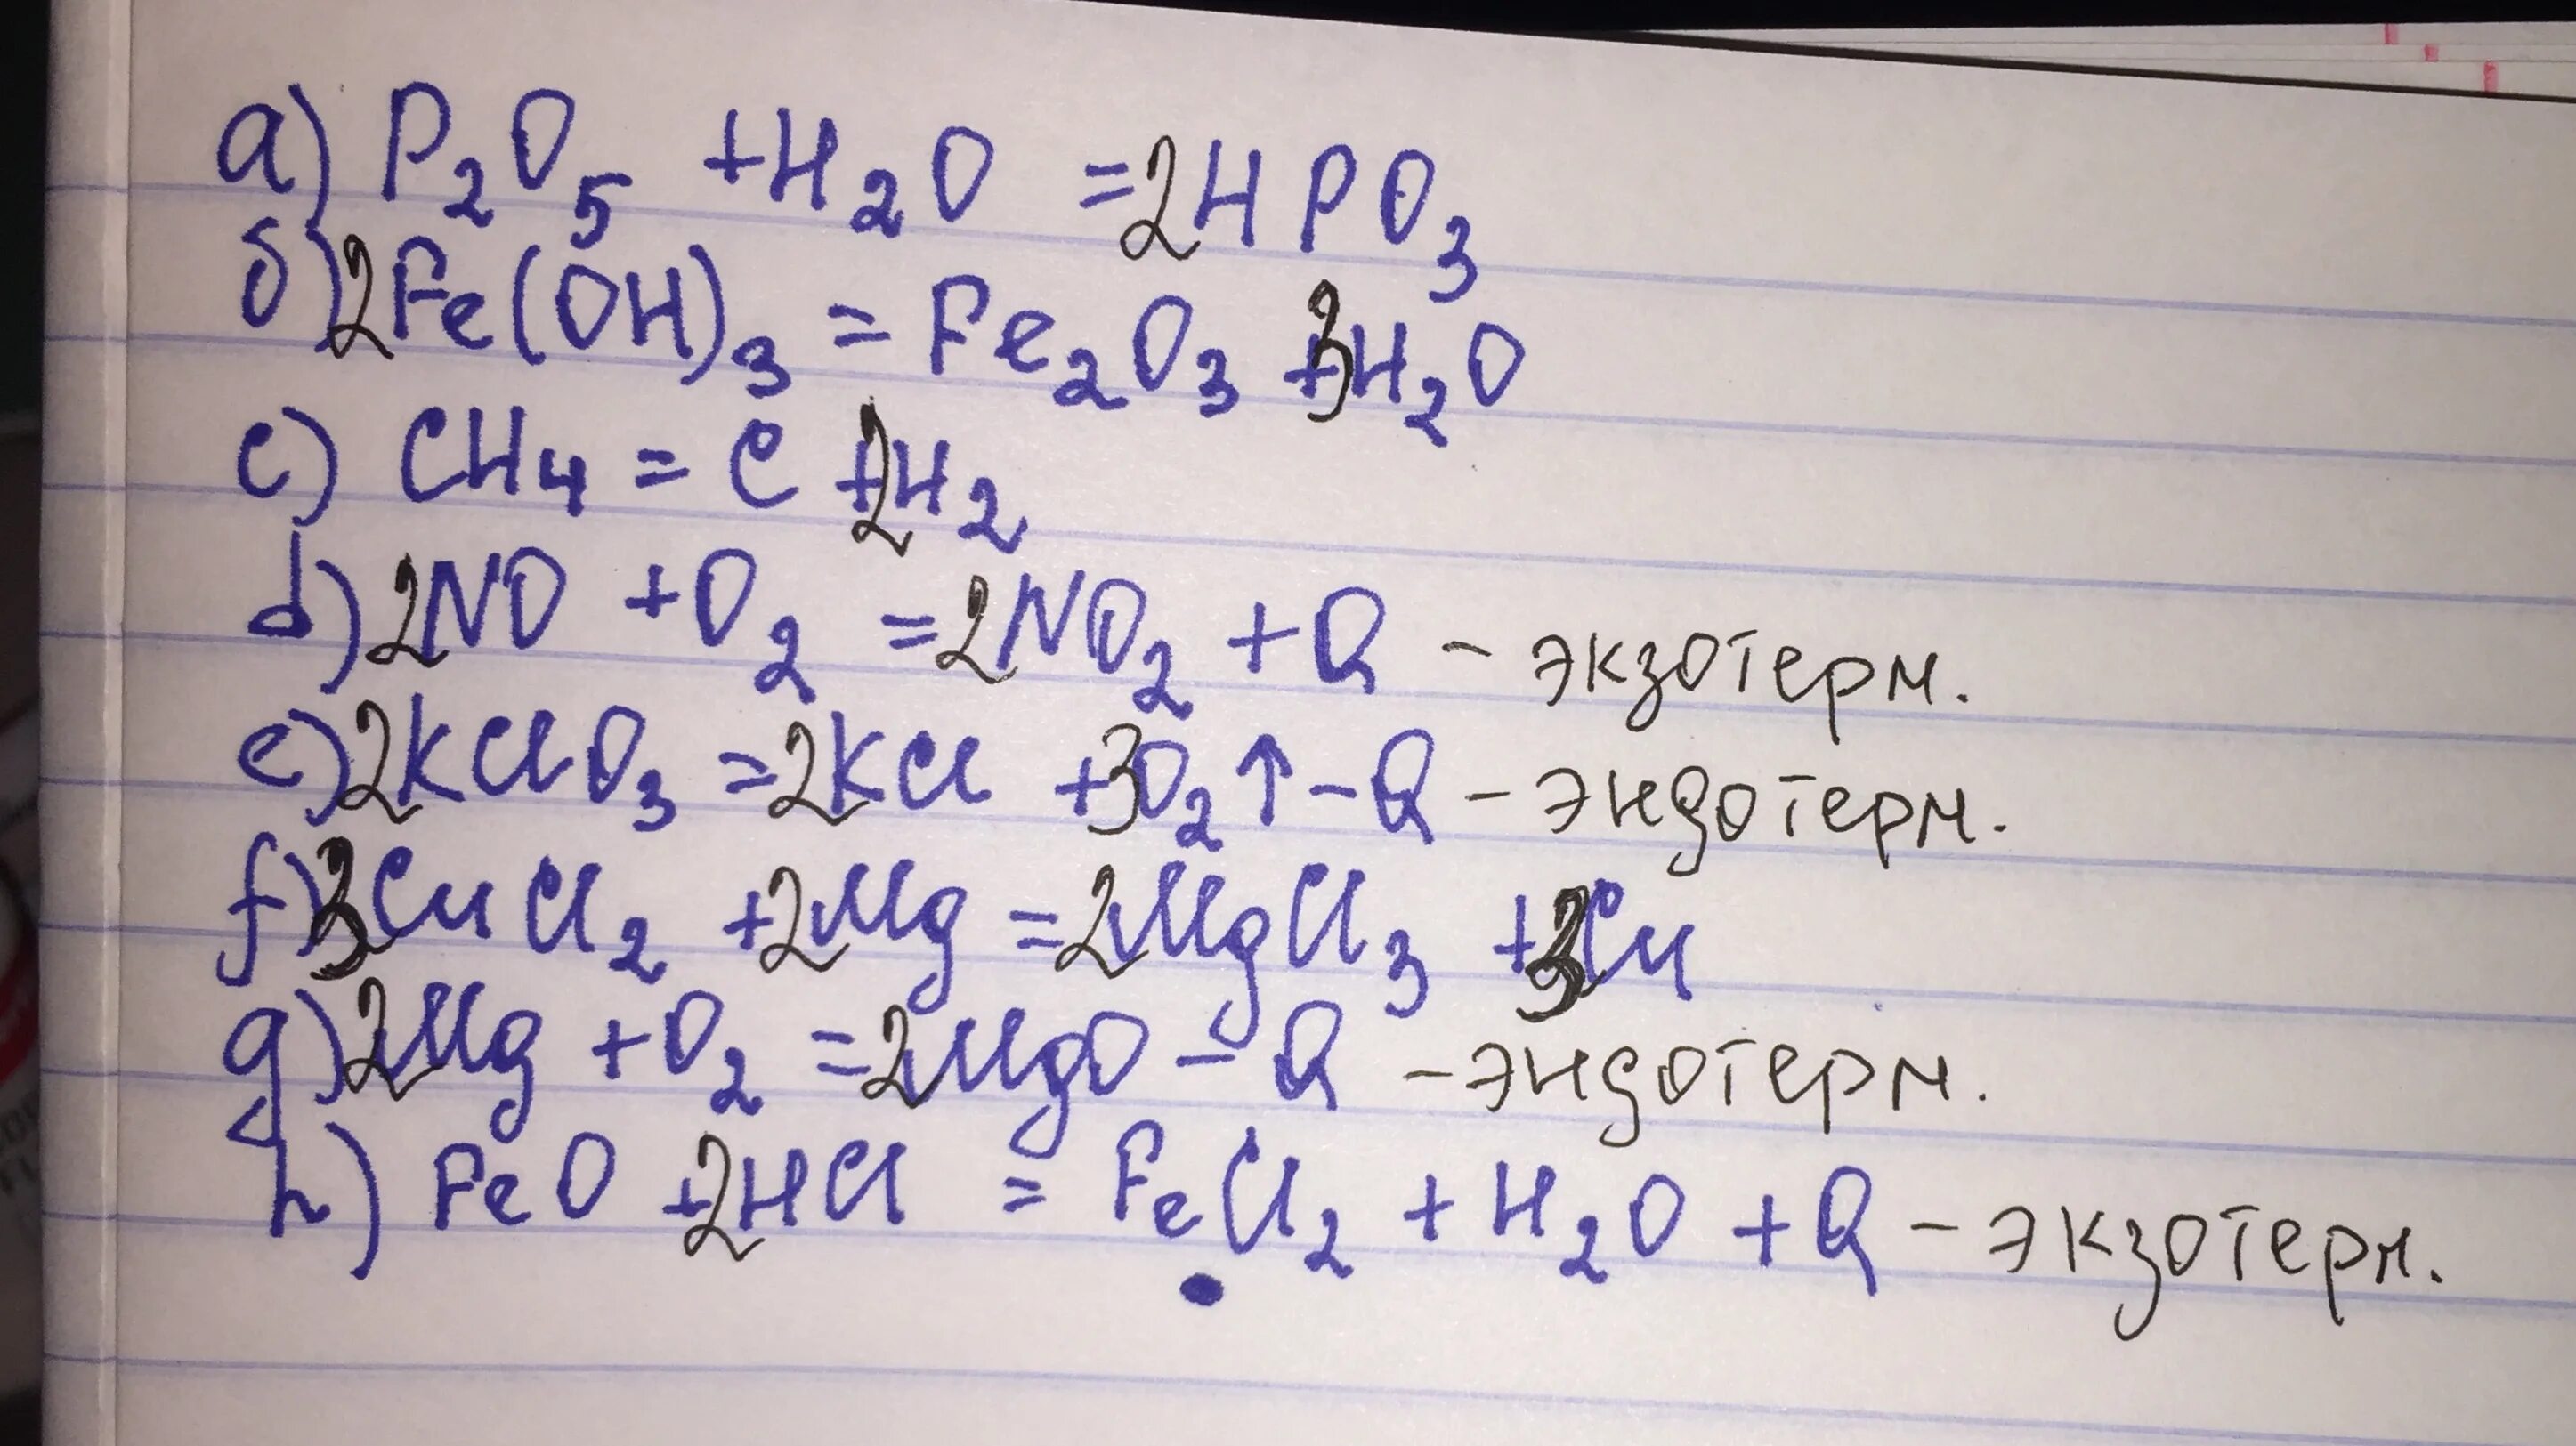 a) P₂O₅ + H₂O = 2HPO₃
б) 2Fe(OH)₃ = Fe₂O₃ + 3H₂O
c) CH₄ = C + 2H₂
d) 2NO + O₂ = 2NO₂ + Q - экзотерм.
e) 2KClO₃ = 2KCl + 3O₂↑ - Q - эндотерм.
f) 3CuCl₂ + 2Mg = 2MgCl₃ + 3Cu
g) 2Mg + O₂ = 2MgO - Q - эндотерм.
h) FeO + 2HCl = FeCl₂ + H₂O + Q - экзотерм.